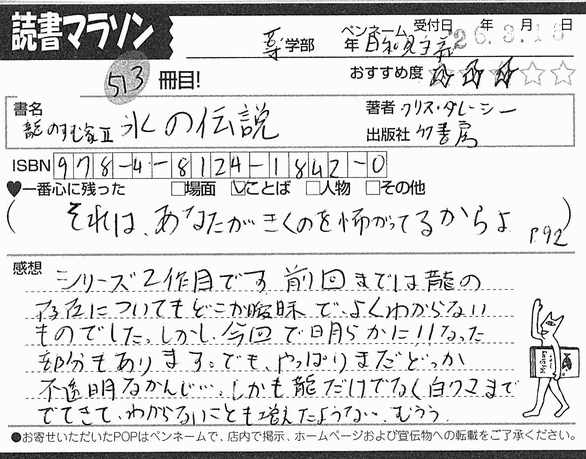 読書マラソン
学部
年
ペンネーム
受付日 26.3.18
年 月 日
513冊目!
おすすめ度 ★★★☆☆
書名
龍のすむ家Ⅱ 氷の伝説
著者 クリス・ダレーシー
出版社 竹書房
ISBN 978-4-8124-1842-0
♥一番心に残った □場面 ☑ことば □人物 □その他
(それは、あなたがきくのを怖がってるからよ P.92)
感想
シリーズ2作目です。前回までは龍の
存在についてもどこか曖昧で、よくわからない
ものでした。しかし、今回で明らかになった
部分もあります。でも、やっぱりまだどっか
不透明なかんじ…。しかも龍だけでなく白クマまで
でてきて、わからないことも増えたような…。むぅぅ
●お寄せいただいたPOPはペンネームで、店内で掲示、ホームページおよび宣伝物への転載をご了承ください。